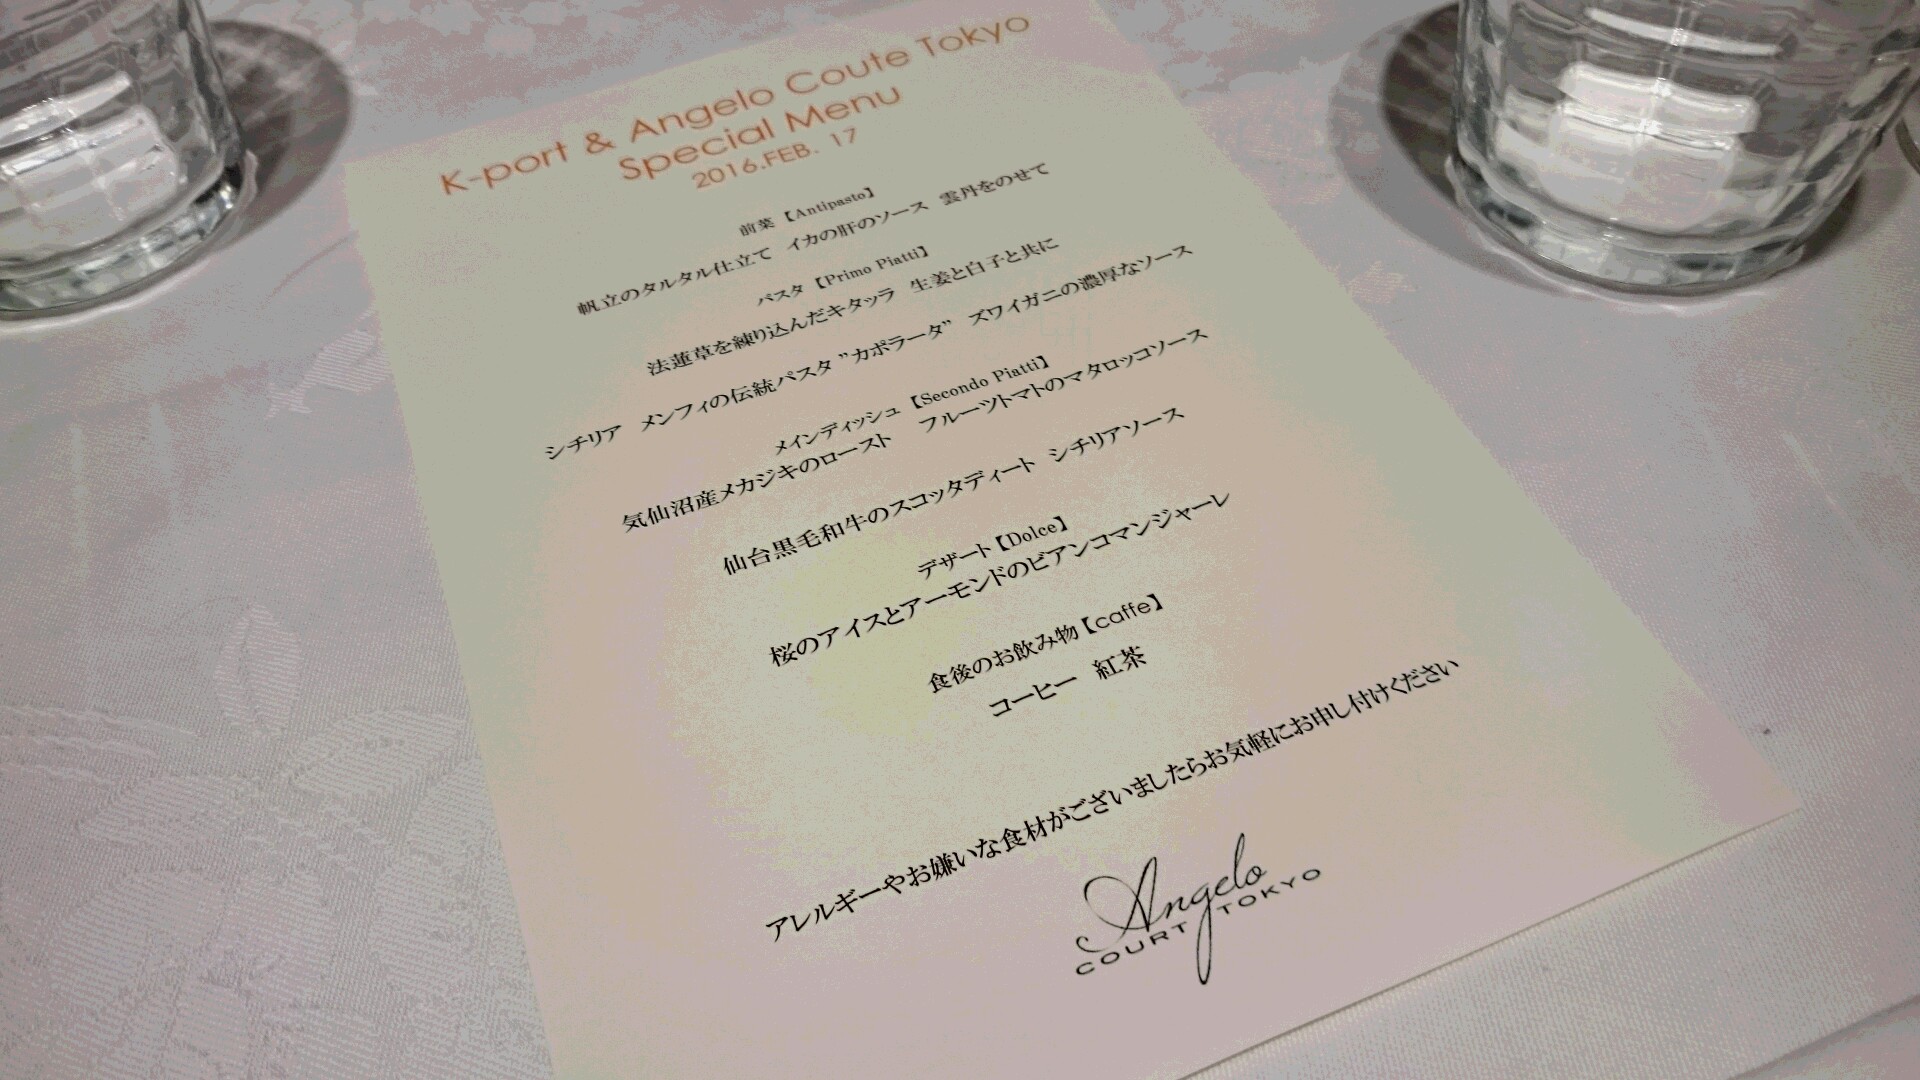 K-port & Angelo Coute Tokyo
Special Menu
2016.FEB. 17
前菜【Antipasto】
帆立のタルタル仕立て イカの肝のソース 雲丹をのせて
パスタ【Primo Piatti】
法蓮草を練り込んだキタッラ 生姜と白子と共に
シチリア メンフィの伝統パスタ "カポラータ" ズワイガニの濃厚なソース
メインディッシュ【Secondo Piatti】
気仙沼産メカジキのロースト フルーツトマトのマタロッコソース
仙台黒毛和牛のスコッタディート シチリアソース
デザート【Dolce】
桜のアイスとアーモンドのビアンコマンジャーレ
食後のお飲み物【caffe】
コーヒー 紅茶
アレルギーやお嫌いな食材がございましたらお気軽にお申し付けください
Angelo
COURT TOKYO